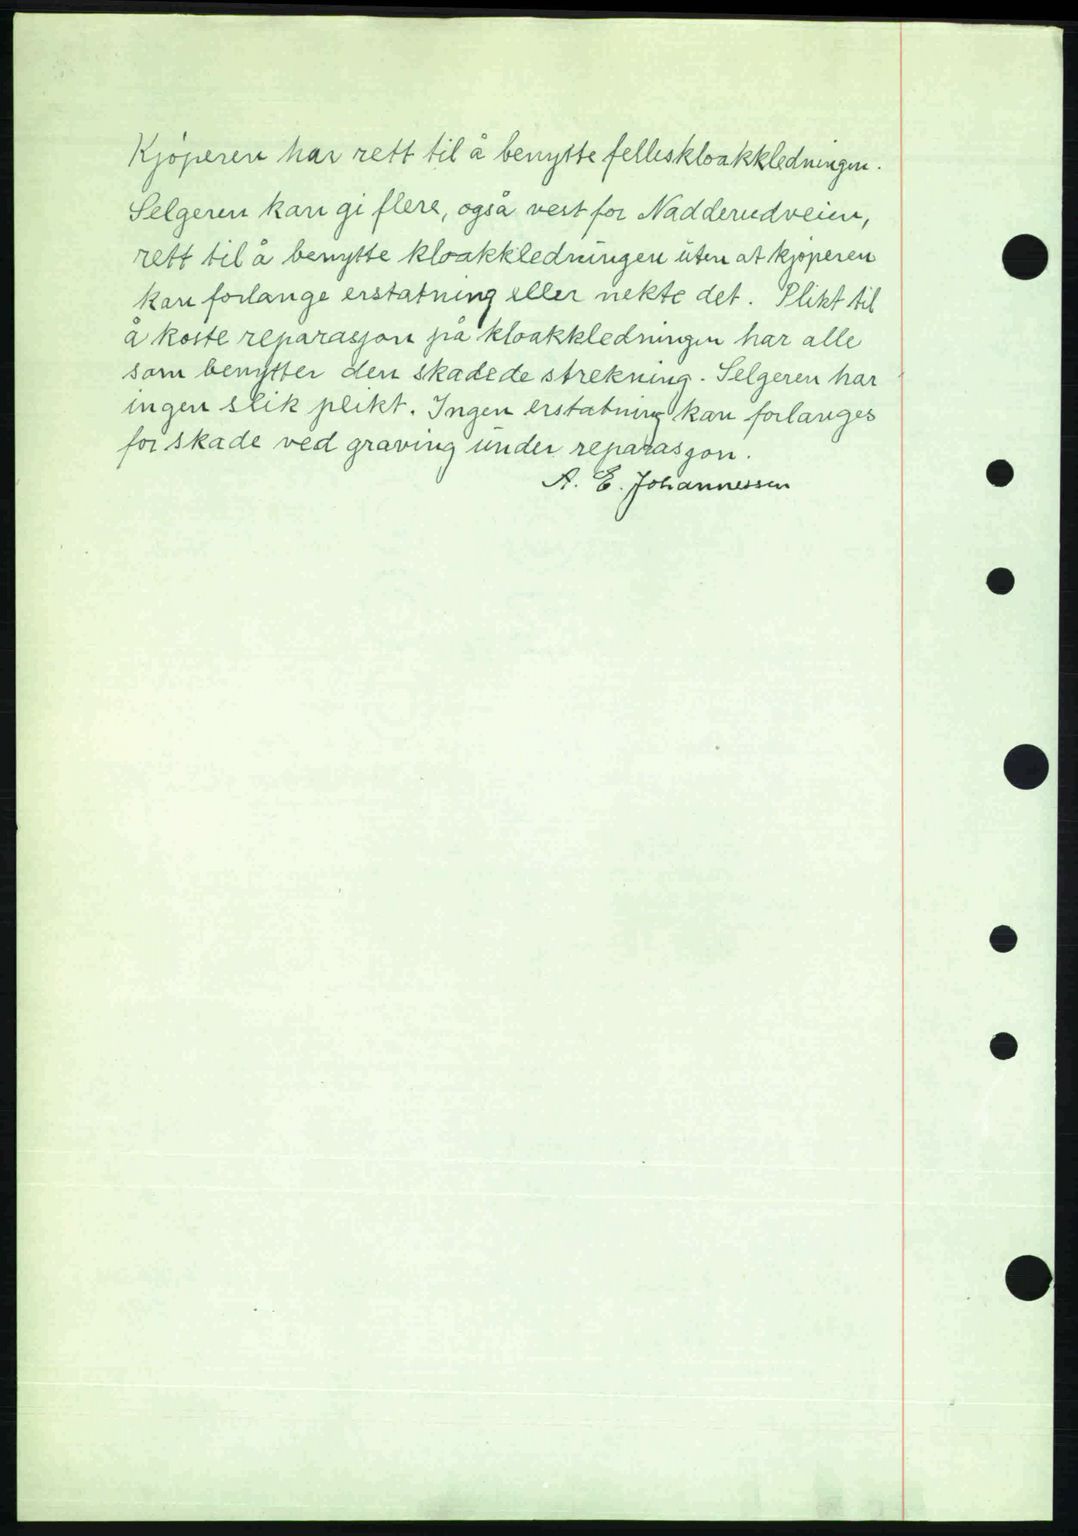 Kjøperen har rett til å benytte felleskloakkledningen.
Selgeren kan gi flere, også vest for Nadderudveien,
rett til å benytte kloakkledningen uten at kjøperen
kan forlange erstatning eller nekte det. Plikt til
å koste reparasjon på kloakkledningen har alle
som benytter den skadede strekning. Selgeren har
ingen slik plikt. Ingen erstatning kan forlanges
for skade ved graving under reparasjon.
A. E. Johannessen